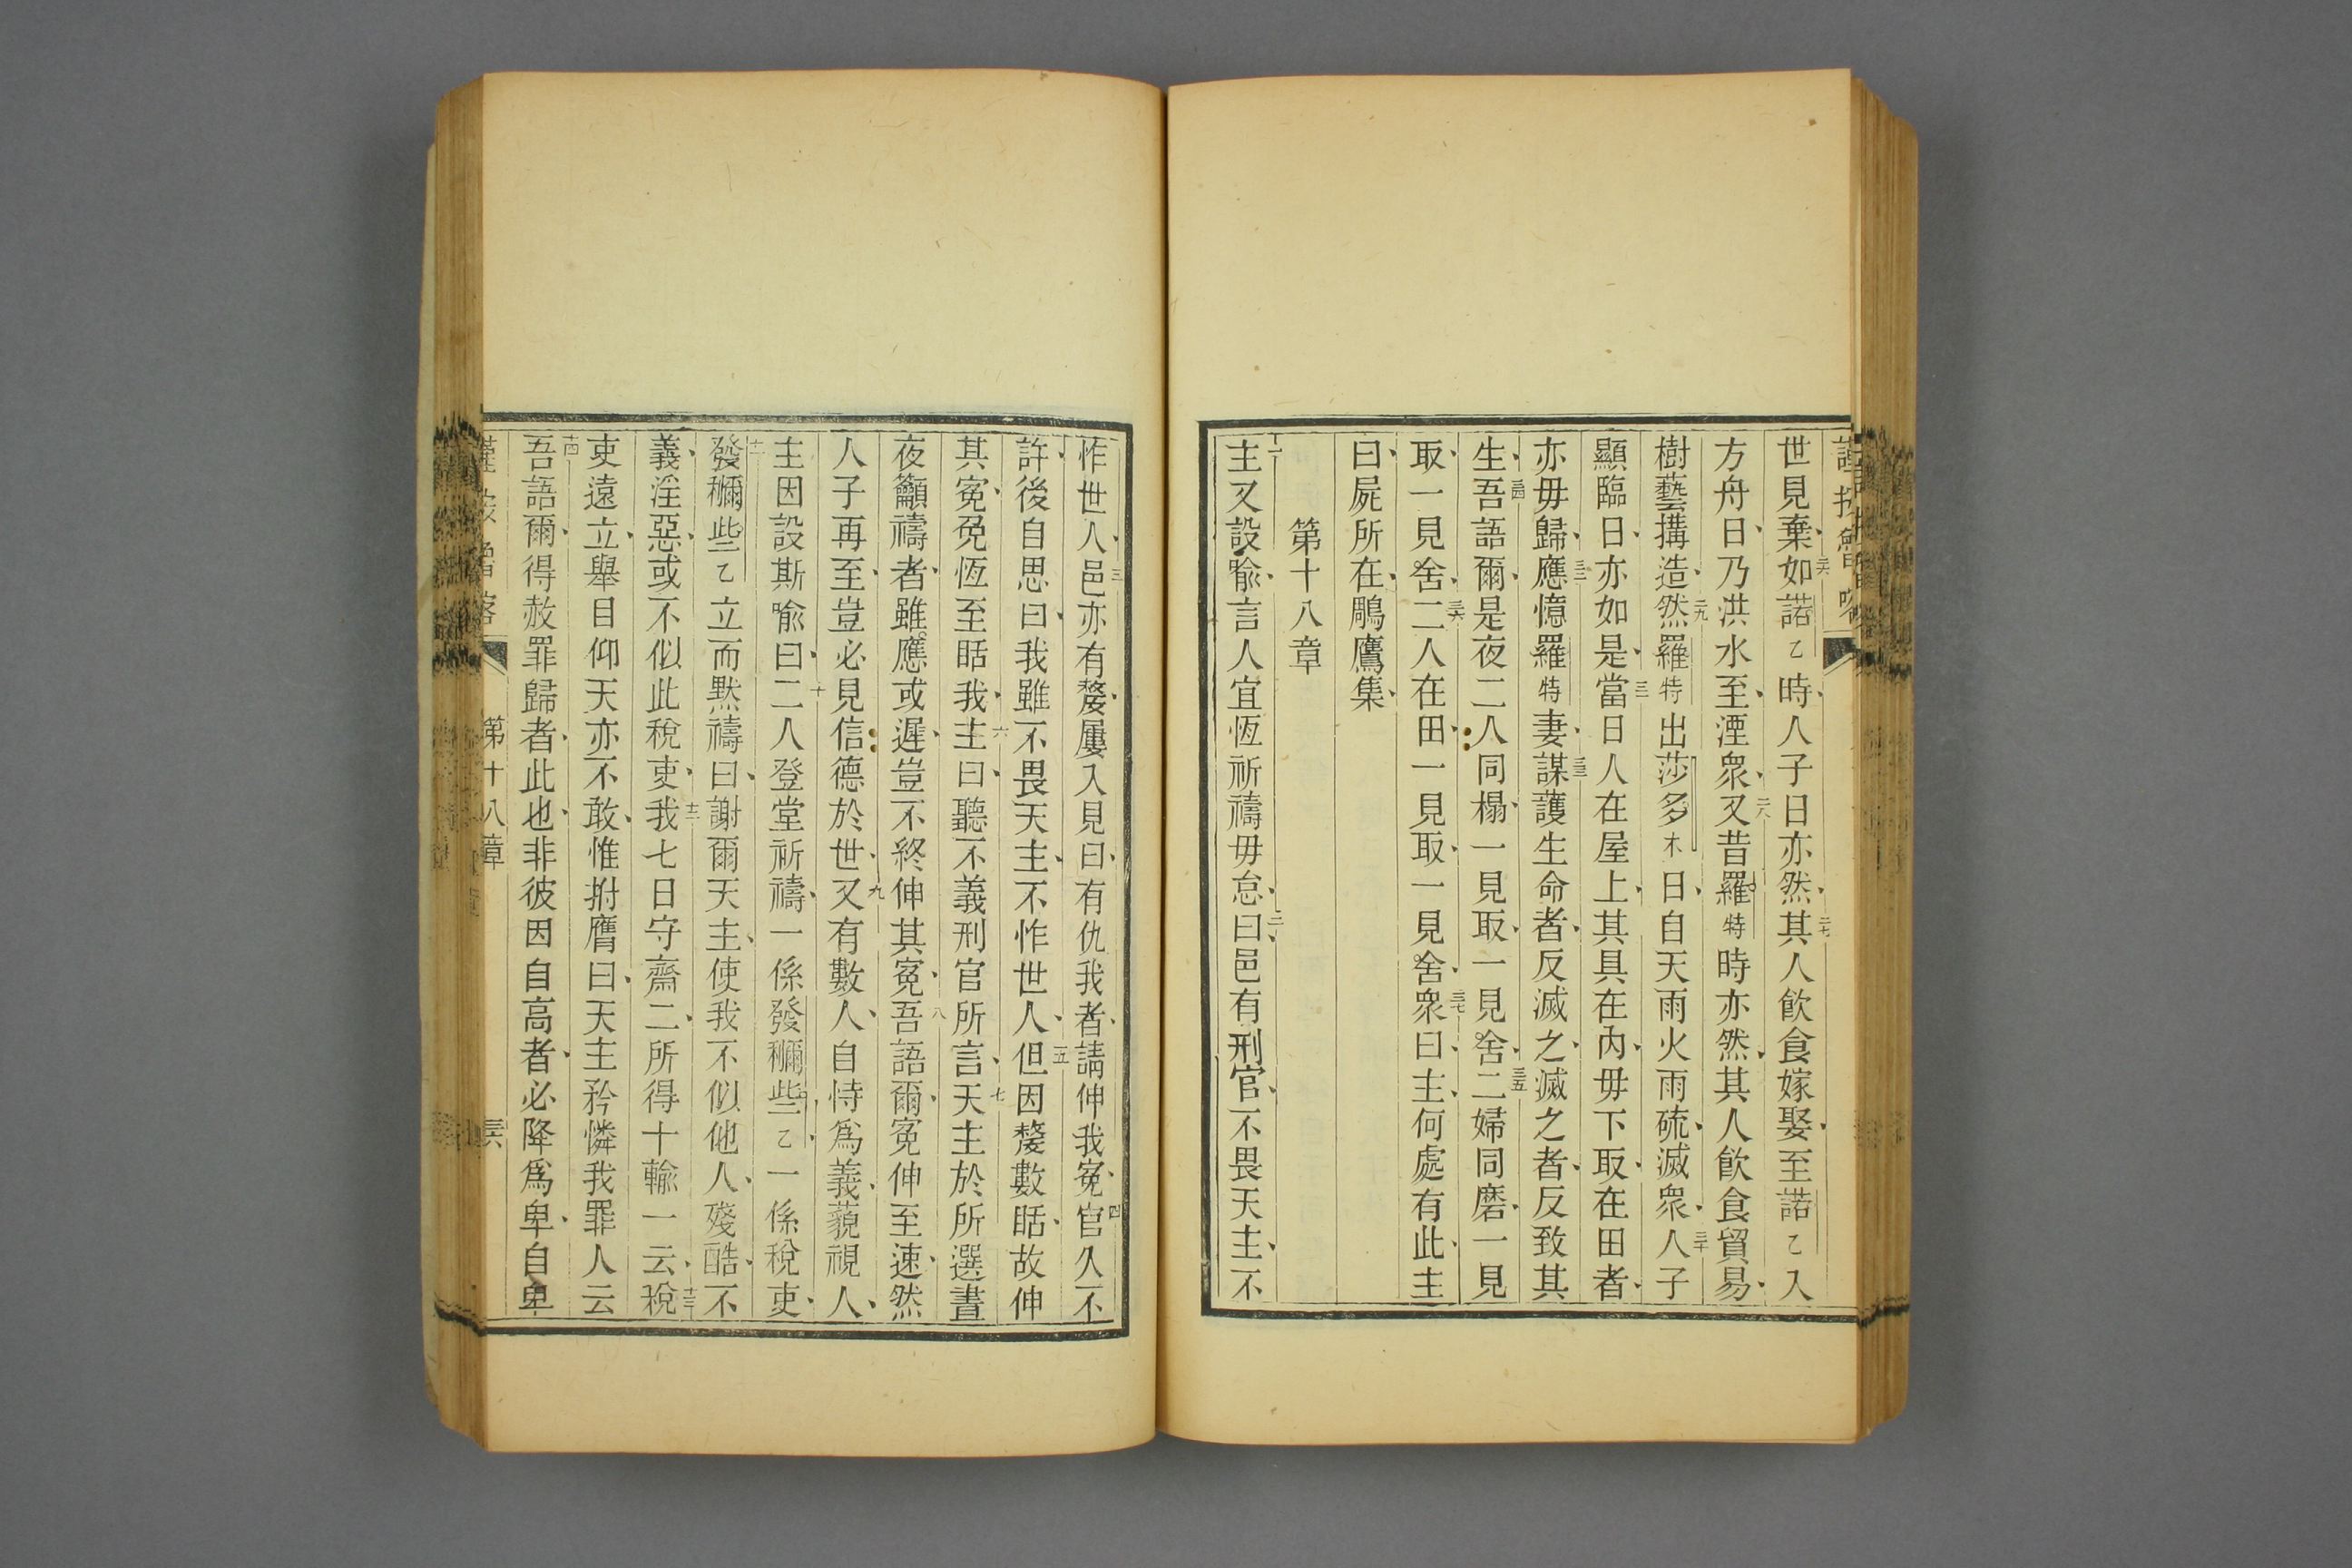 世見棄二六如諾乙時人子日亦然二七其人飲食嫁娶至諾乙入
方舟日乃洪水至湮衆二八又昔羅特時亦然其人飮食貿易
樹藝搆造二九然羅特出莎多木日自天雨火雨硫滅衆三十人子
顯臨日亦如是三一當日人在屋上其具在內毋下取在田者
亦毋歸三二應憶羅特妻三三謀護生命者反滅之滅之者反致其
生三四吾語爾是夜二人同榻一見取一見舍三五二婦同磨一見
取一見舍三六二人在田一見取一見舍三七衆曰主何處有此主
曰屍所在鵰鷹集
第十八章
一主又設喩言人宜恆祈禱毋怠二曰邑有刑官不畏天主不
怍世人三邑亦有嫠屢入見曰有仇我者請伸我寃四官久不
許後自思曰我雖不畏天主不怍世人五但因嫠數聒故伸
其寃免恆至聒我六主曰聽不義刑官所言七天主於所選晝
夜籲禱者雖應或遲豈不終伸其寃八吾語爾寃伸至速然
人子再至豈必見信德於世九又有數人自恃爲義藐視人
主因設斯喩曰十二人登堂祈禱一係發穪些乙一係稅吏
十一發穪些乙立而默禱曰謝爾天主使我不似他人殘酷不
義淫惡或不似此稅吏十二我七日守齋二所得十輸一云十三稅
吏遠立舉目仰天亦不敢惟拊膺曰天主矜憐我罪人云
十四吾語爾得赦罪歸者此也非彼因自高者必降爲卑自卑
第十八章
三六